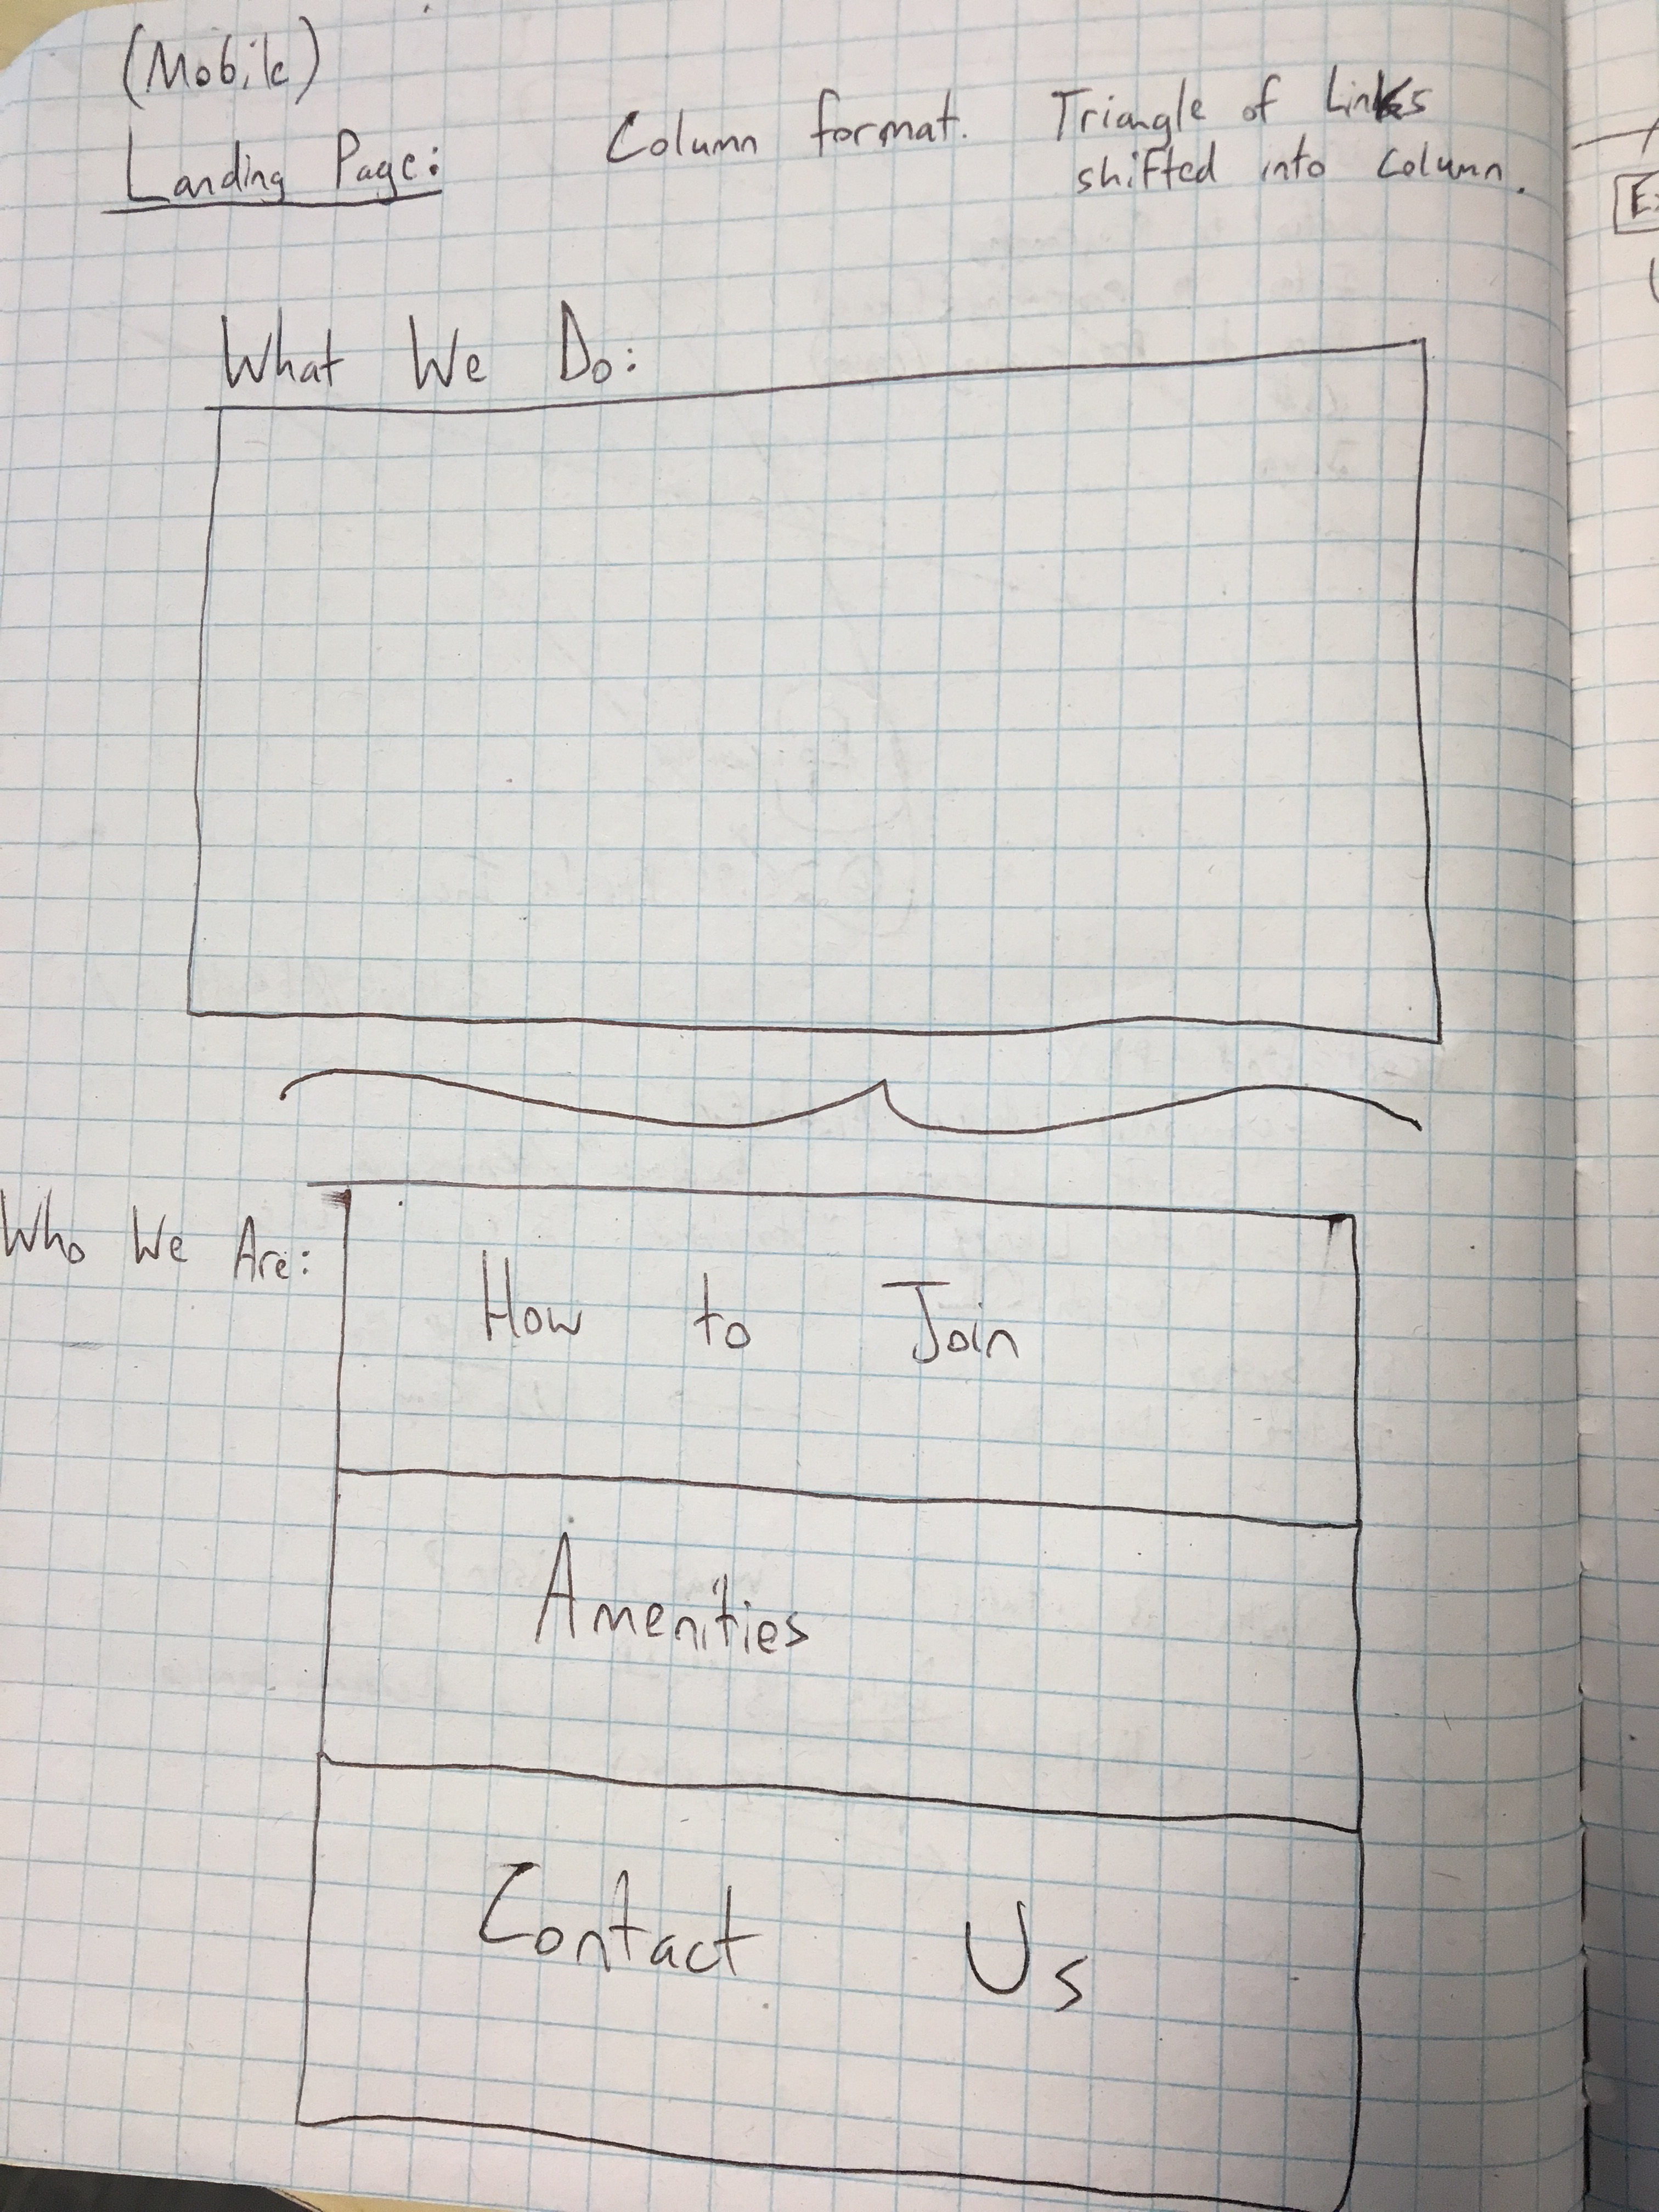 (Mobile)
Landing Page:
Column format. Triangle of Links
shifted into column.
What We Do:
Who We Are:
How to Join
Amenities
Contact Us